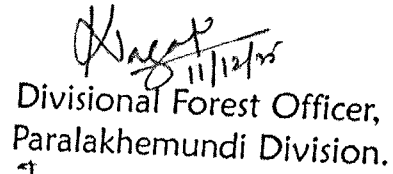 11/12/25
Divisional Forest Officer,
Paralakhemundi Division.